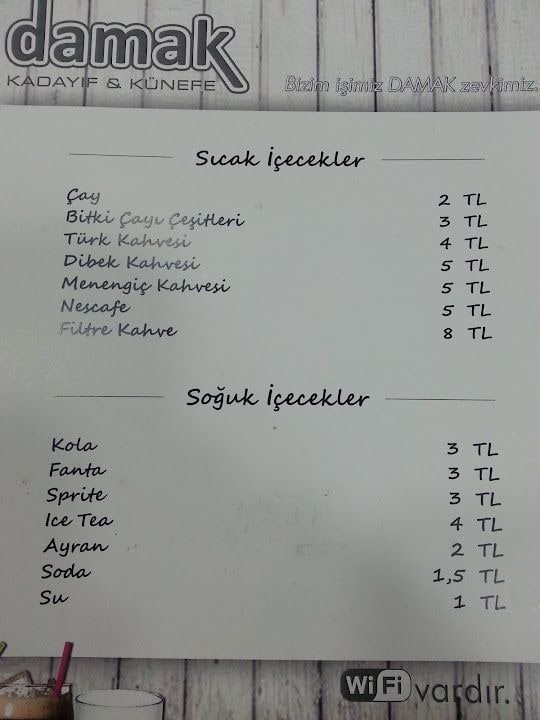 damak
KADAYIF & KÜNEFE
Bizim işimiz DAMAK zevkimiz.
Sıcak İçecekler
Çay 2 TL
Bitki Çayı Çeşitleri 3 TL
Türk Kahvesi 4 TL
Dibek Kahvesi 5 TL
Menengiç Kahvesi 5 TL
Nescafe 5 TL
Filtre Kahve 8 TL
Soğuk İçecekler
Kola 3 TL
Fanta 3 TL
Sprite 3 TL
Ice Tea 4 TL
Ayran 2 TL
Soda 1,5 TL
Su 1 TL
WiFi vardır.